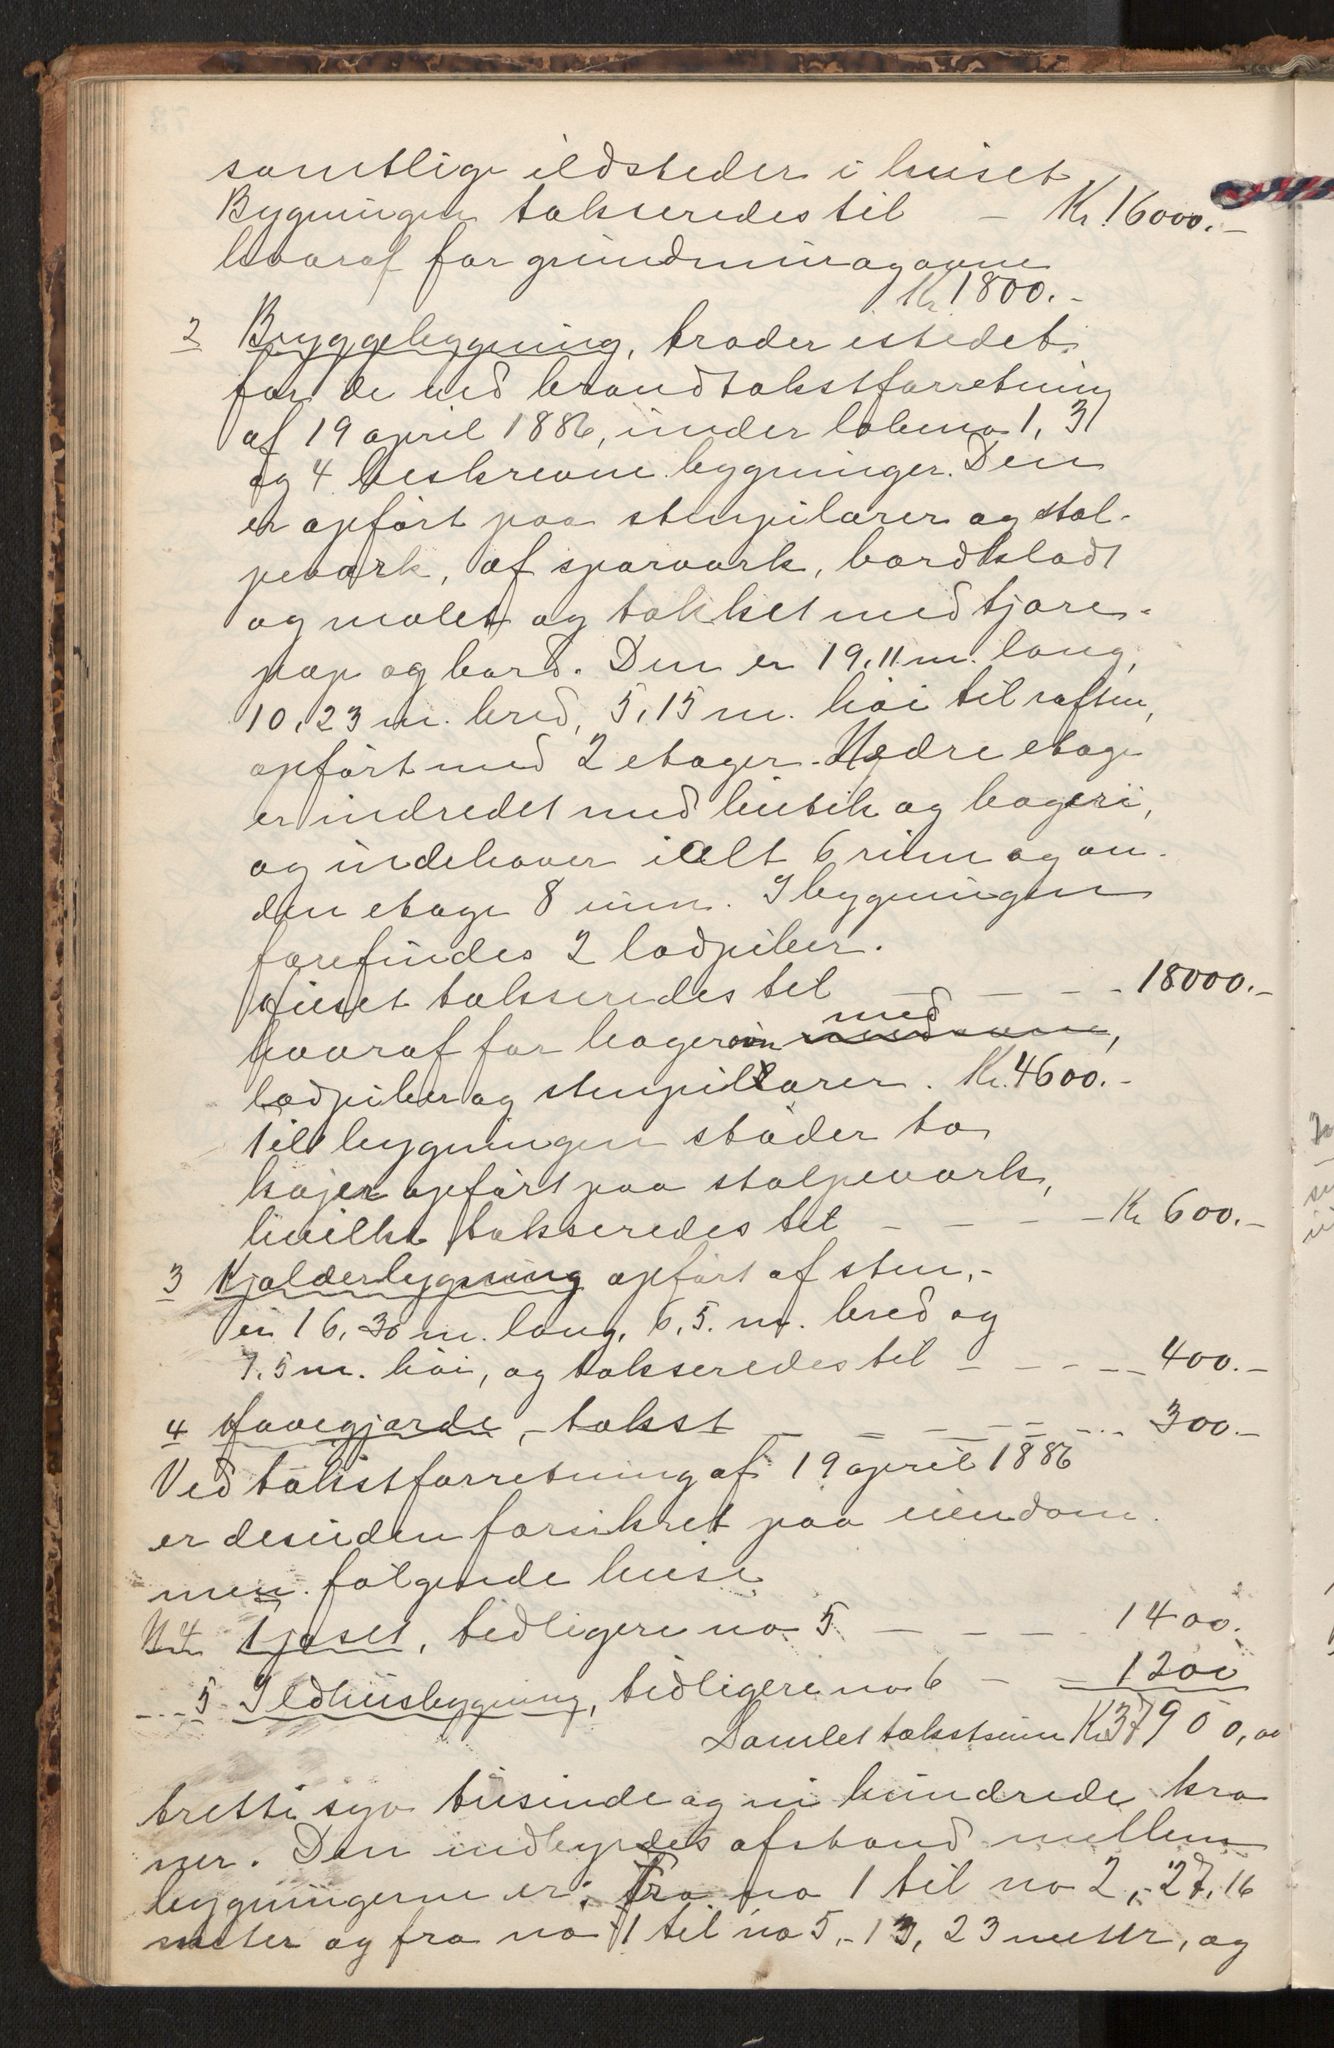 samtlige ildsteder i huset
Bygningen takseredes til — Kr. 16000.-
hvoraf for grundmur og ovne
Kr 1800.-
2 Bryggebygning, træder istedet
for de ved brandtakstforretning
af 19 april 1886, under løbeno 1, 3
og 4 beskrevne bygninger. Den
er opført paa stenpilarer og stol-
peverk, af sparverk, bordklædt
og malet og tækket med tjære-
pap og bord. Den er 19,11 m. lang,
10,23 m. bred, 5,15 m. høi til raften,
opført med 2 etager. Nedre etage
er indredet med butik og bageri,
og indehaver ialt 6 rum og an-
den etage 8 rum. I bygningen
forefindes 2 ladpiber.
Huset takseredes til — — — - 18000.-
hvoraf for bagerovn med
ladpiber og stenpillarer. Kr. 4600.-
Til bygningen støder to
kajer opført paa stolpeverk,
hvilke takseredes til - - - - Kr 600.-
3 Kjælderbygning opført af sten,-
er 16,30 m. lang, 6,5. m. bred og
7,5 m. høi, og takseredes til - - - - 400.-
4 Havegjærde, - takst — — — — 300.-
Ved takstforretning af 19 april 1886
er desuden forsikret paa eiendom-
men følgende huse
No 4 Fjøset, tidligere no 5 — — — - 1400.
5 Ildhusbygning, tidligere no 6 — - 1200
Samlet takstsum Kr 37900,00
tretti syv tusinde og ni hundrede kro
ner. Den indbyrdes afstand mellem
bygningerne er: Fra no 1 til no 2,- 27,16
meter og fra no 1 til no 5,- 13,23 meter, og